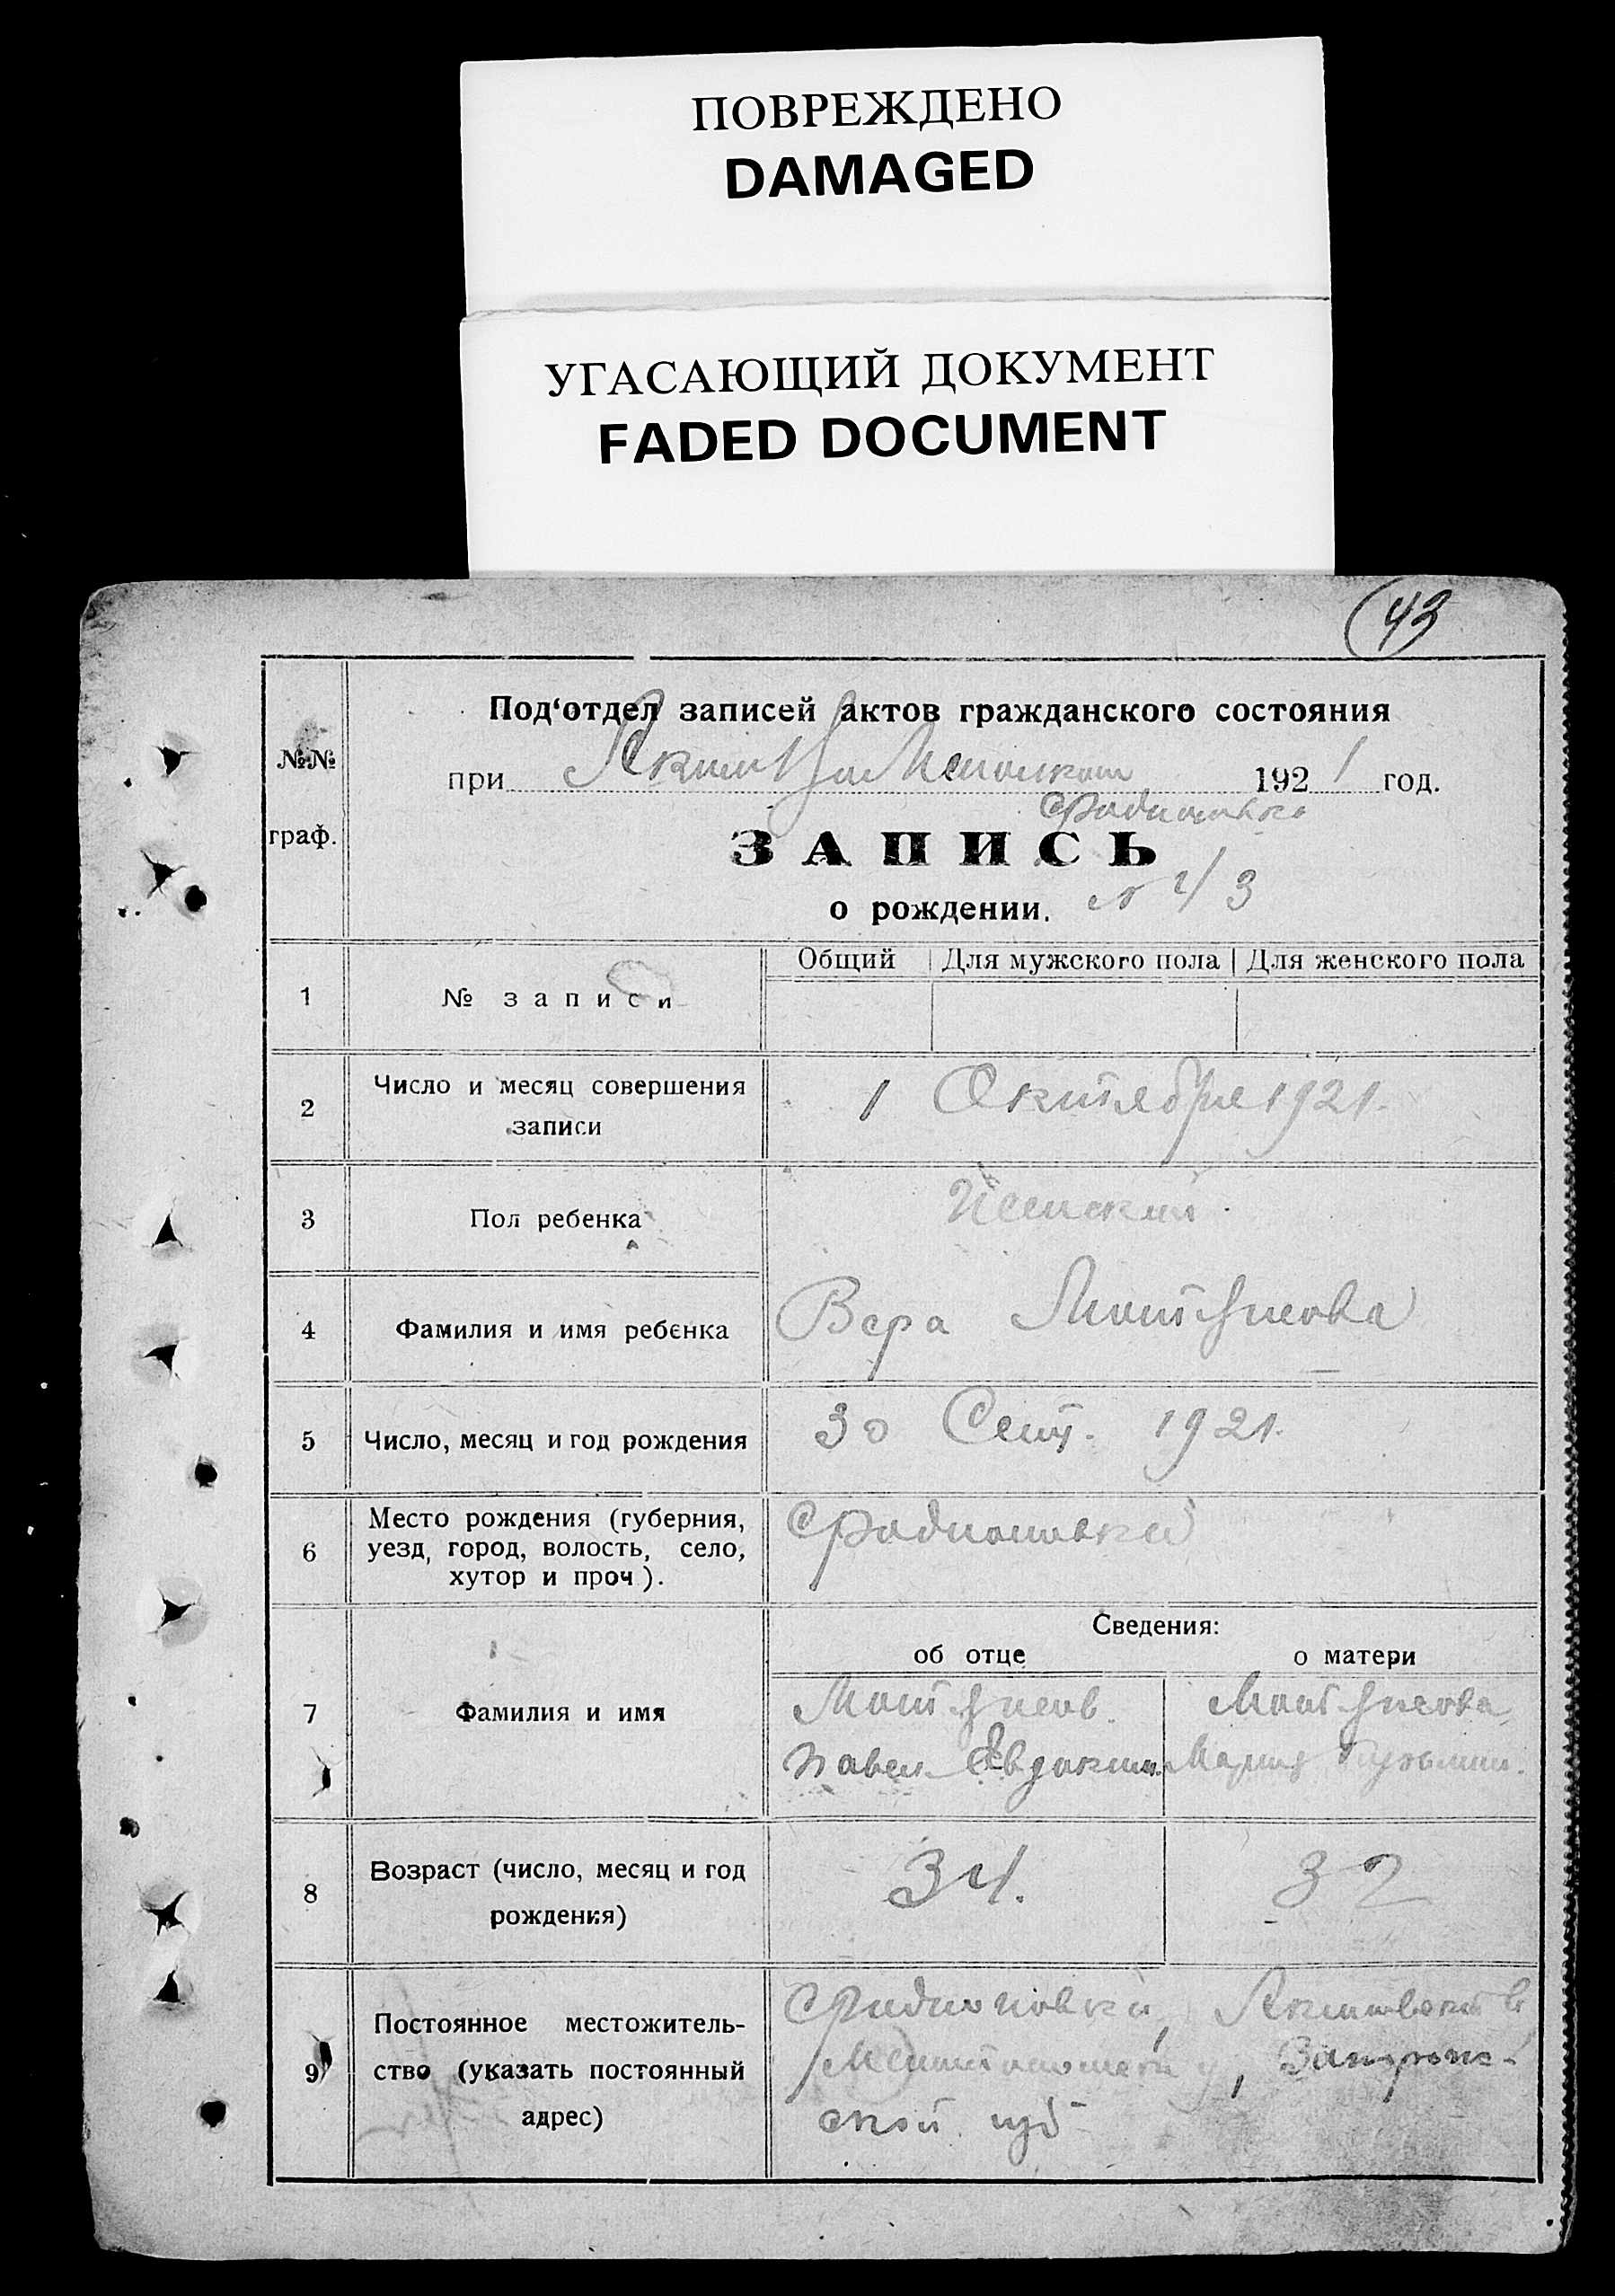 ПОВРЕЖДЕНО
DAMAGED
УГАСАЮЩИЙ ДОКУМЕНТ
FADED DOCUMENT
43
№№
граф.
Под‘отдел записей актов гражданского состояния
при 1921 год.
Родионовка
ЗАПИСЬ
о рождении. № 43
Общий Для мужского пола Для женского пола
1 № записи
2 Число и месяц совершения записи
1 Октября 1921.
3 Пол ребенка
Женский
4 Фамилия и имя ребенка
Вера
5 Число, месяц и год рождения
30 Сент. 1921.
6 Место рождения (губерния,
уезд, город, волость, село,
хутор и проч).
Родионовка
Сведения:
об отце о матери
7 Фамилия и имя
Павел Евдоким. Мария Кузьмин.
8 Возраст (число, месяц и год
рождения)
34. 32
9 Постоянное местожитель-
ство (указать постоянный
адрес)
Родионовка,
Запорож-
ской губ